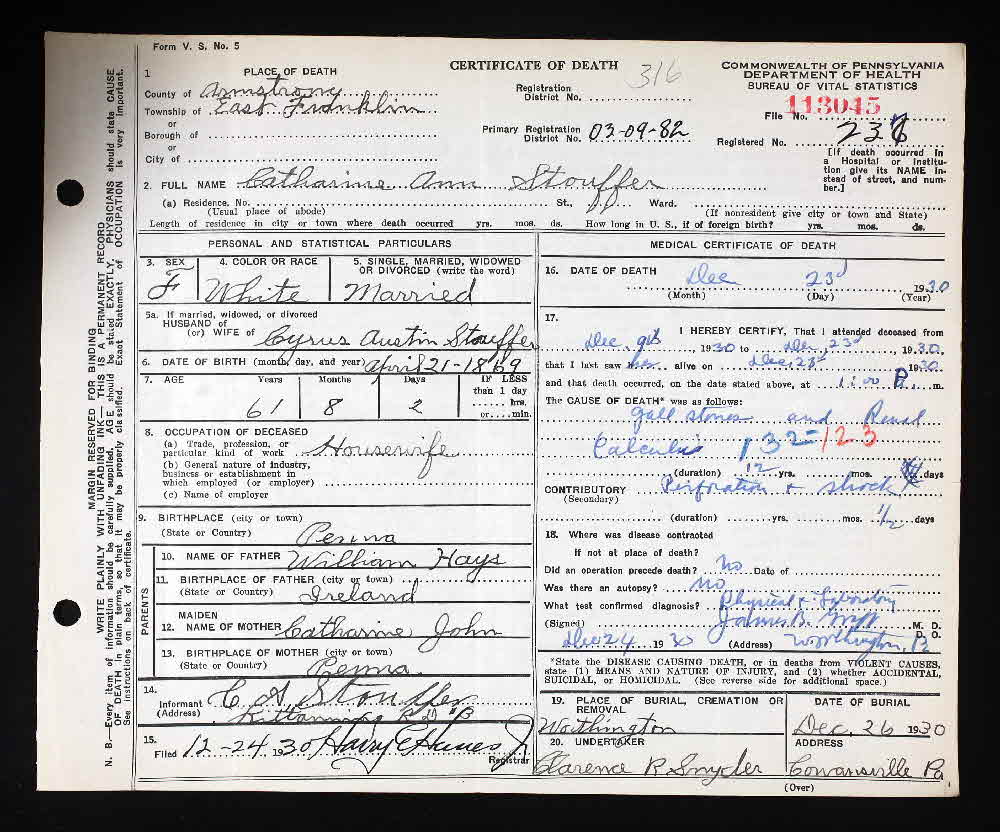 Form V. S. No. 5
CERTIFICATE OF DEATH
316
COMMONWEALTH OF PENNSYLVANIA
DEPARTMENT OF HEALTH
BUREAU OF VITAL STATISTICS
1 PLACE OF DEATH
County of Armstrong
Township of East Franklin
or
Borough of
or
City of
Registration District No.
Primary Registration District No. 03-09-82
File No. 113045
Registered No. 23
[If death occurred in a Hospital or Institution give its NAME instead of street, and number.]
2. FULL NAME Catharine Ann Stouffer
(a) Residence, No. St., Ward.
(Usual place of abode) (If nonresident give city or town and State)
Length of residence in city or town where death occurred yrs. mos. ds. How long in U. S., if of foreign birth? yrs. mos. ds.
PERSONAL AND STATISTICAL PARTICULARS
3. SEX F
4. COLOR OR RACE White
5. SINGLE, MARRIED, WIDOWED OR DIVORCED (write the word) Married
5a. If married, widowed, or divorced
HUSBAND of
(or) WIFE of Cyrus Austin Stouffer
6. DATE OF BIRTH (month, day, and year) April 21-1869
7. AGE Years Months Days IF LESS than 1 day
61 8 2 hrs. or min.
8. OCCUPATION OF DECEASED
(a) Trade, profession, or particular kind of work Housewife
(b) General nature of industry, business or establishment in which employed (or employer)
(c) Name of employer
9. BIRTHPLACE (city or town)
(State or Country) Penna
PARENTS
10. NAME OF FATHER William Hays
11. BIRTHPLACE OF FATHER (city or town)
(State or Country) Ireland
12. MAIDEN NAME OF MOTHER Catharine John
13. BIRTHPLACE OF MOTHER (city or town)
(State or Country) Penna
14. Informant C A Stouffer
(Address) Kittanning
15. Filed 12-24 1930 Harry C Jr
Registrar
MEDICAL CERTIFICATE OF DEATH
16. DATE OF DEATH Dec 23d 1930
(Month) (Day) (Year)
17. I HEREBY CERTIFY, That I attended deceased from
Dec 1930 to Dec, 23d 1930.
that I last saw her alive on Dec, 23d 1930
and that death occurred, on the date stated above, at 1:00 P. m.
The CAUSE OF DEATH* was as follows:
Gall stones and Renal
Calculus 132-123
(duration) 12 yrs. mos. days
CONTRIBUTORY (Secondary) Perforation & shock
(duration) yrs. mos. 1/2 days
18. Where was disease contracted
If not at place of death?
Did an operation precede death? No Date of
Was there an autopsy? No
What test confirmed diagnosis? Physical & Laboratory
(Signed) James B. M. D. D. O.
Dec 24 1930 (Address) Worthington, Pa
*State the DISEASE CAUSING DEATH, or in deaths from VIOLENT CAUSES, state (1) MEANS AND NATURE OF INJURY, and (2) whether ACCIDENTAL, SUICIDAL, or HOMICIDAL. (See reverse side for additional space.)
19. PLACE OF BURIAL, CREMATION OR REMOVAL
Worthington
DATE OF BURIAL
Dec, 26 1930
20. UNDERTAKER
Clarence R Snyder
ADDRESS
Cowansville Pa
(Over)
MARGIN RESERVED FOR BINDING
WRITE PLAINLY WITH UNFADING INK — THIS IS A PERMANENT RECORD
N. B.—Every item of information should be carefully supplied. AGE should be stated EXACTLY. PHYSICIANS should state CAUSE OF DEATH in plain terms, so that it may be properly classified. Exact Statement of OCCUPATION is very important. See instructions on back of certificate.